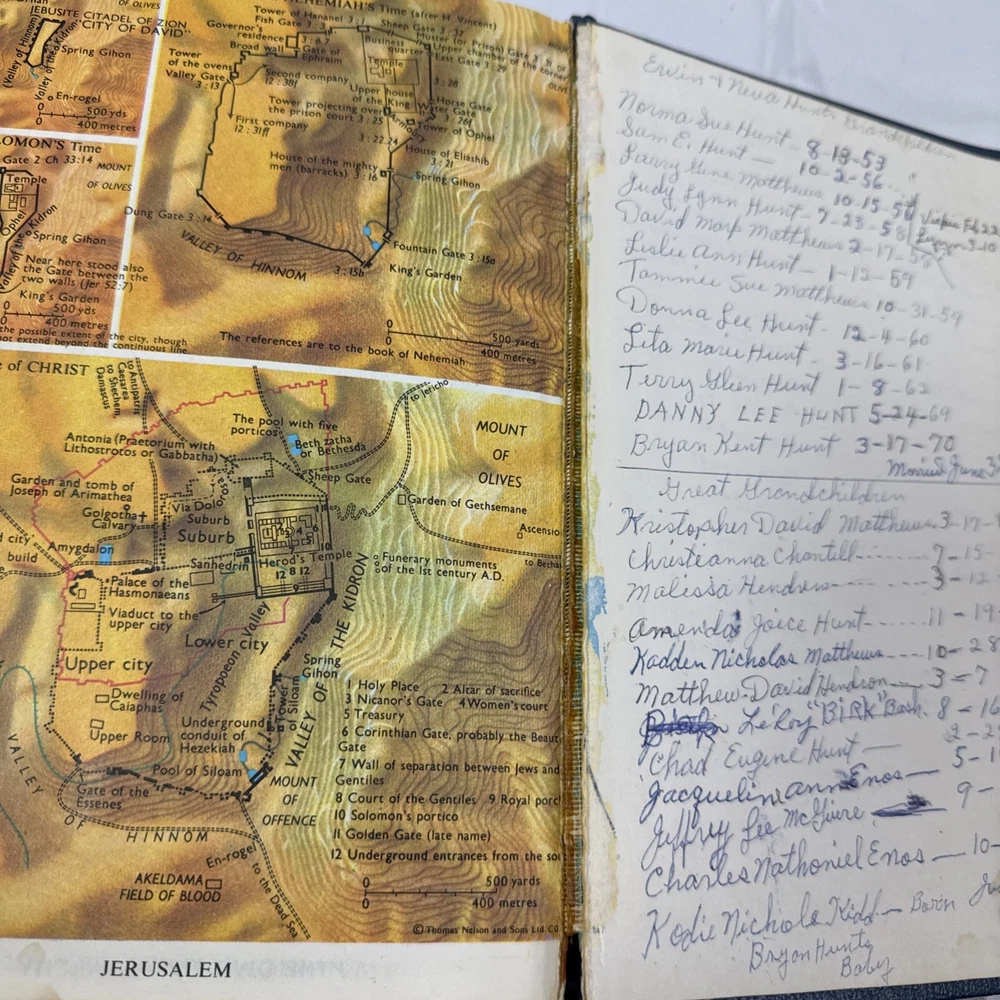 JEBUSITE CITADEL OF ZION
"CITY OF DAVID"
OF OLIVES
(Valley of Hinnom)
Valley of the Kidron
Spring Gihon
En-rogel
0 500 yds
0 400 metres
SOLOMON'S Time
Gate 2 Ch 33:14
MOUNT
OF OLIVES
Temple
Ophel
Valley of the Kidron
Spring Gihon
Near here stood also
the Gate between the
two walls (Jer 52:7)
King's Garden
0 500 yds
0 400 metres
the possible extent of the city, though
not extend beyond the continuous line
NEHEMIAH'S Time (after H. Vincent)
Tower of Hananel 3:1
Fish Gate
Sheep Gate
Governor's
residence
3:6,7
Broad wall
Gate of
Ephraim
Business
quarter
Muster (or Prison) Gate
Upper chamber of the corner
East Gate 3:29
Temple
Tower
of the ovens
Valley Gate
3:13
Second company
12:38f
3:28
Upper
house of
the King
Horse Gate
Water Gate
3:26f
Tower projecting over
the prison court 3:25
Armoury
Tower of Ophel
First company
12:31ff
3:22,24
House of Eliashib
3:21
House of the mighty
men (barracks) 3:16
Spring Gihon
Dung Gate 3:14
VALLEY OF HINNOM
3:15b
Fountain Gate 3:15a
King's Garden
0 500 yards
0 400 metres
The references are to the book of Nehemiah
e of CHRIST
to Antipatris
Caesarea
to Shechem,
Damascus
to Jericho
The pool with five
porticos
Beth-zatha
or Bethesda
MOUNT
OF
OLIVES
Antonia (Praetorium with
Lithostrotos or Gabbatha)
Sheep Gate
Garden and tomb of
Joseph of Arimathea
Golgotha
Calvary
Via Dolo
rosa
Suburb
Suburb
Garden of Gethsemane
Ascension
d city
build
Amygdalon
Sanhedrin
Herod's Temple
to Bethany
Funerary monuments
of the 1st century A.D.
Palace of the
Hasmonaeans
Viaduct to the
upper city
Lower city
Upper city
Tyropoeon Valley
VALLEY OF THE KIDRON
Spring
Gihon
Tower
of Siloam
Dwelling of
Caiaphas
Upper Room
Underground
conduit of
Hezekiah
Pool of Siloam
Gate of the
Essenes
VALLEY OF HINNOM
MOUNT
OF
OFFENCE
En-rogel
to the Dead Sea
AKELDAMA
FIELD OF BLOOD
1 Holy Place 2 Altar of sacrifice
3 Nicanor's Gate 4 Women's court
5 Treasury
6 Corinthian Gate, probably the Beaut
Gate
7 Wall of separation between Jews and
Gentiles
8 Court of the Gentiles 9 Royal porch
10 Solomon's portico
11 Golden Gate (late name)
12 Underground entrances from the sou
0 500 yards
0 400 metres
© Thomas Nelson and Sons Ltd. CO
JERUSALEM
Ervin & Neva Hunts Grandchildren
Norma Sue Hunt - 8-13-53
Sam E. Hunt - 10-2-56
Larry Gene Matthews 10-15-56
Judy Lynn Hunt - 7-23-58
David Mark Matthews 2-17-58
Leslie Ann Hunt - 1-12-59
Tammie Sue Matthews 10-31-59
Donna Lee Hunt - 12-4-60
Lita Marie Hunt - 3-16-61
Terry Glenn Hunt 1-8-62
DANNY LEE HUNT 5-24-69
Bryan Kent Hunt 3-17-70
Married June 3
Great Grandchildren
Kristopher David Matthews 3-17-
Christeanna Chantill 7-15-
Malissa Hendron 3-12
Amenda Joice Hunt 11-19
Kadden Nicholas Matthews 10-28
Matthew David Hendron 3-7
LeRoy "BIRK" Bash. 8-16
Chad Eugene Hunt - 2-2
Jacquelin Ann Enos - 5-1
Jeffry Lee McGuire 9-
Charles Nathaniel Enos - 10-
Kodie Nichole Kidd - Born Ju
Bryan Hunts
Baby